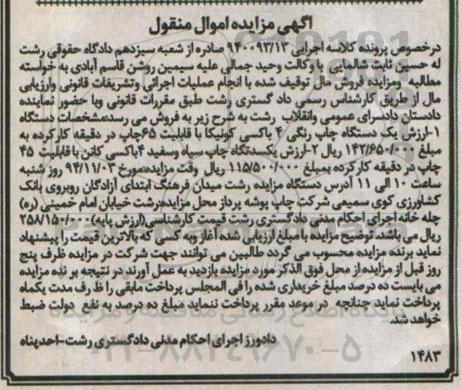 آگهی مزایده اموال منقول
درخصوص پرونده کلاسه اجرایی ۹۴۰۰۹۳/۱۳ صادره از شعبه سیزدهم دادگاه حقوقی رشت
له حسین ثابت شالمایی با وکالت وحید جمالی علیه سیمین روشن قاسم آبادی به خواسته
مطالبه ومزایده فروش مال توقیف شده با انجام عملیات اجرائی وتشریفات قانونی وارزیابی
مال از طریق کارشناس رسمی دادگستری رشت طبق مقررات قانونی وبا حضور نماینده
دادستان دادسرای عمومی وانقلاب رشت به شرح زیر به فروش می رسد:مشخصات دستگاه
۱-ارزش یک دستگاه چاپ رنگی ۴ باکسی کونیکا با قابلیت ۶۵چاپ در دقیقه کارکرده به
مبلغ ۱۴۲/۶۵۰/۰۰۰ ریال ۲-ارزش یکسدتگاه چاپ سیاه وسفید ۴باکسی کانن با قابلیت ۴۵
چاپ در دقیقه کارکرده بمبلغ ۱۱۵/۵۰۰/۰۰۰ ریال وقت مزایده:مورخ ۹۴/۱۱/۰۳ روز شنبه
ساعت ۱۰ الی ۱۱ آدرس دستگاه مزایده رشت میدان فرهنگ ابتدای آزادگان روبروی بانک
کشاورزی کوی سمیعی شرکت چاپ پوشه پرداز محل مزایده:رشت خیابان امام خمینی (ره)
چله خانه اجرای احکام مدنی دادگستری رشت قیمت کارشناسی(ارزش پایه)۲۵۸/۱۵۰/۰۰۰
ریال می باشد. توضیح مزایده با مبلغ ارزیابی شده آغاز وبه کسی که بالاترین قیمت را پیشنهاد
نماید برنده مزایده محسوب می گردد طالبین می توانند جهت شرکت در مزایده ظرف پنج
روز قبل از مزایده از محل فوق الذکر مورد مزایده بازدید به عمل آورند در نتیجه بر نده مزایده
می بایست ده درصد مبلغ خریداری شده را فی المجلس پرداخت مابقی را ظرف مدت یکماه
پرداخت نماید چنانچه در موعد مقرر پرداخت ننماید مبلغ ده درصد به نفع دولت ضبط
خواهد شد.
دادورز اجرای احکام مدنی دادگستری رشت-احدپناه
۱۴۸۳
۰۲۱-۸۸۳۴۹۶۷۰-۵